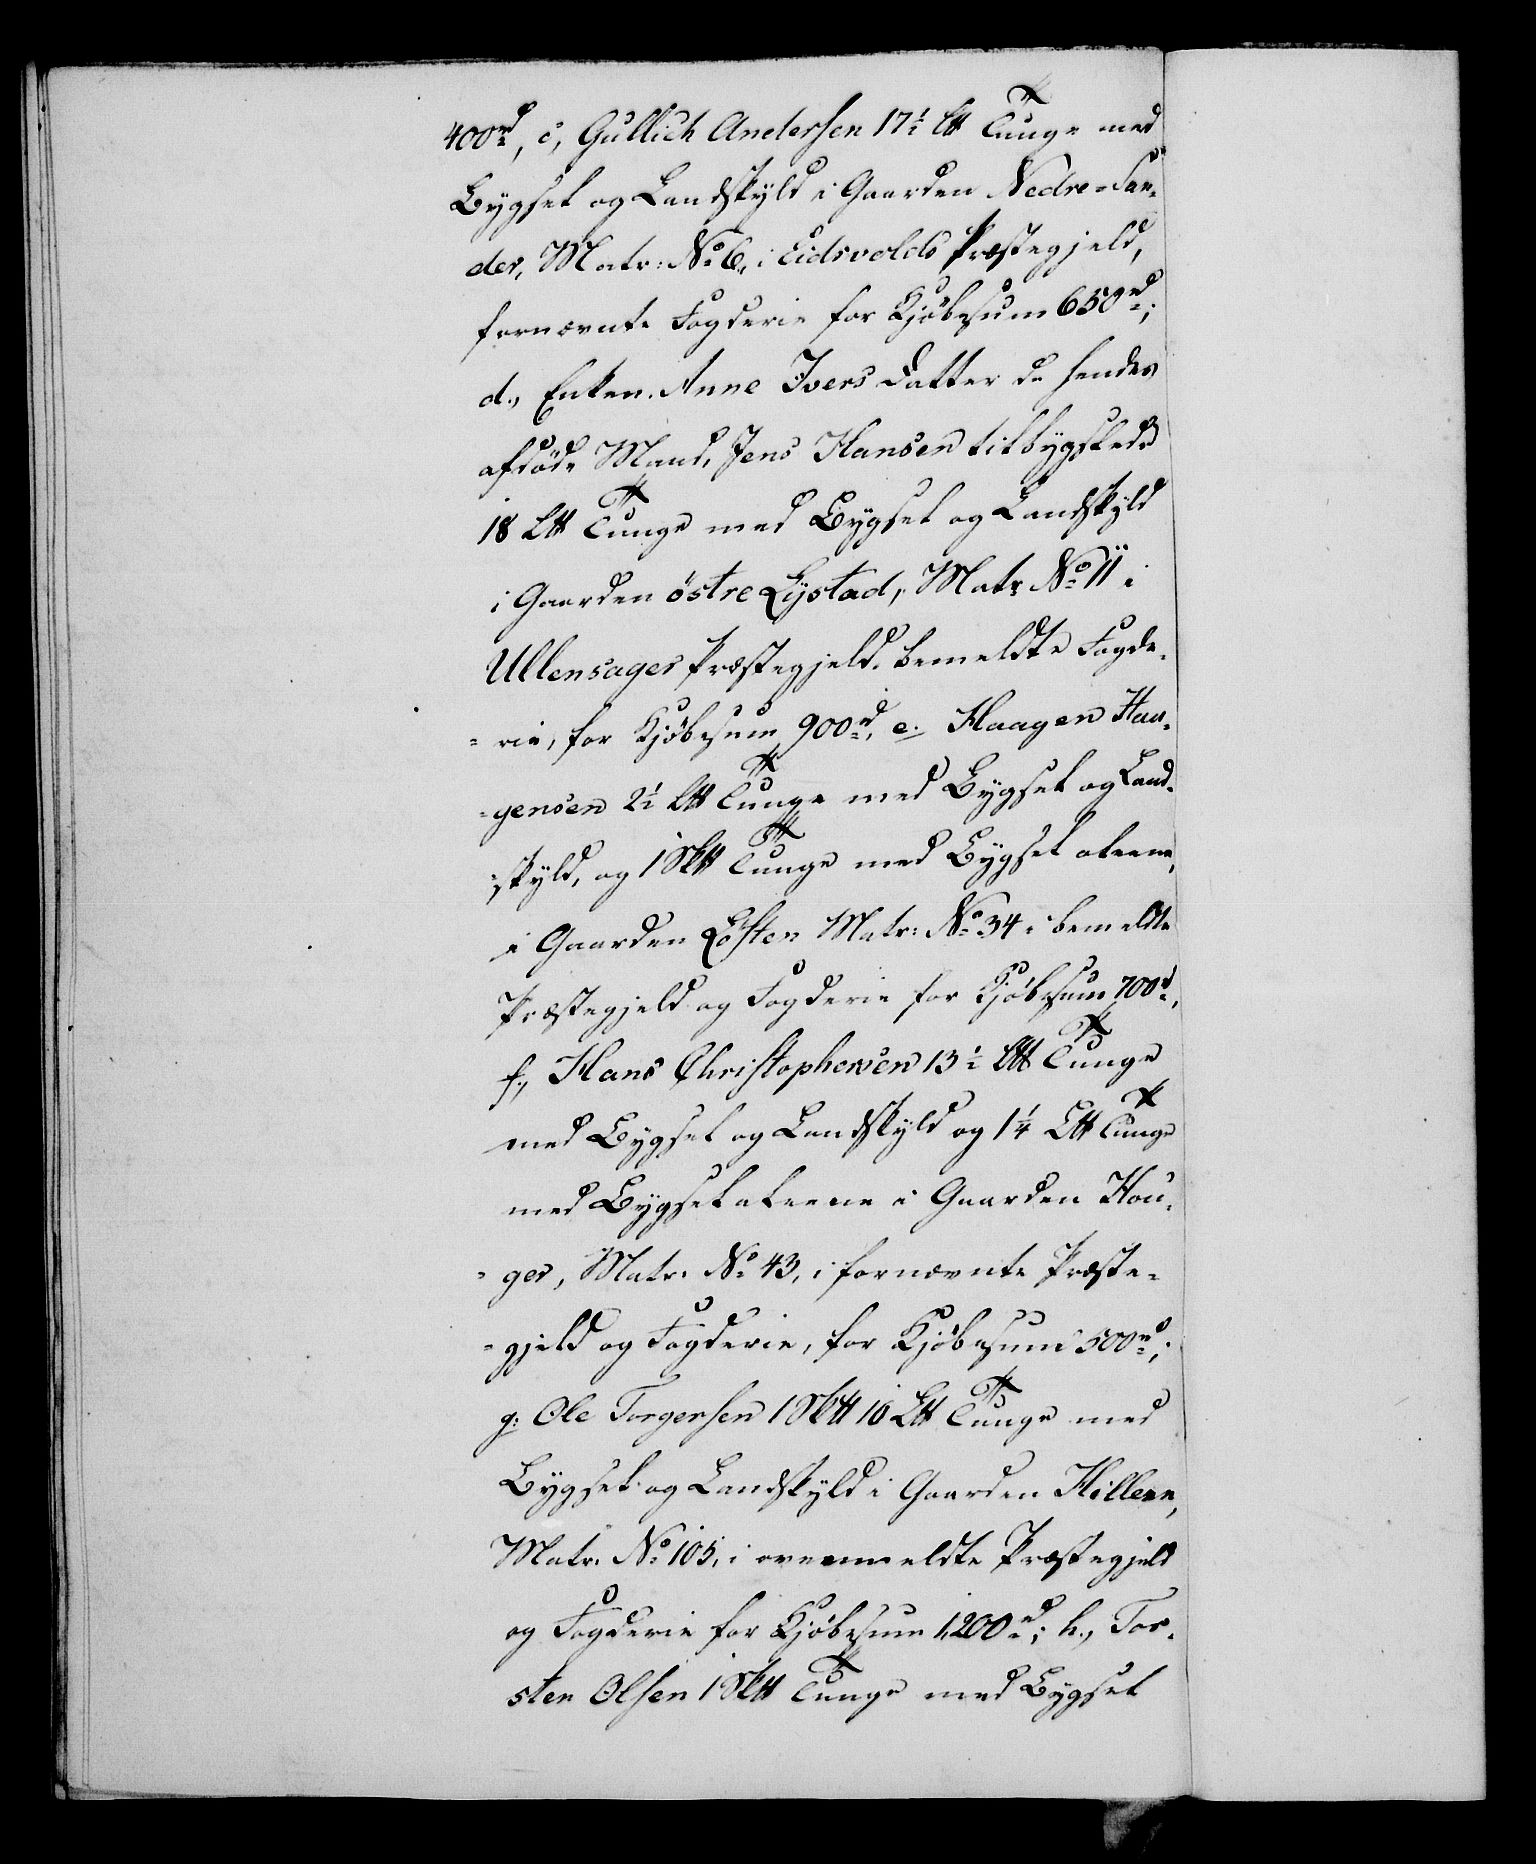 400rd, c, Gullich Andersen 17½ L℔ Tunge med
Bygsel og Landskyld i Gaarden Nedre-San-
der, Matr: No 6, i Eidsvolds Præstegjeld,
fornævnte Fogderie for Kjöbesum 650rd;
d., Enken Anne Ivers Datter de hendes
afdöde Mand, Jens Hansen tilbygslede
18 L℔ Tunge med Bygsel og Landskyld
i Gaarden östre Lystad, Matr No 11 i
Ullensager Præstegjeld, bemeldte Fogde-
-rie, for Kjöbesum 900rd, e. Haagen Haa-
-gensen 2½ L℔ Tunge med Bygsel og Land-
skyld, og 1 Sk℔ Tunge med Bygsel aleene,
i Gaarden Löften Matr: No 34 i bemeldte
Præstegjeld og Fogderie for Kjöbesum 700rd,
f., Hans Christophersen 13½ L℔ Tunge
med Bygsel og Landskyld og 1¼ L℔ Tunge
med Bygsel aleene i Gaarden Hou-
-ger, Matr: No 43, i fornævnte Præste-
-gjeld og Fogderie, for Kjöbesum 500rd;
g: Ole Torgersen 1 Sk℔ 10 L℔ Tunge med
Bygsel og Landskyld i Gaarden Hilleren,
Matr: No 105, i ovenmeldte Præstegjeld
og Fogderie for Kjöbesum 1,200rd; h., Tor-
sten Olsen 1 Sk℔ Tunge med Bygsel